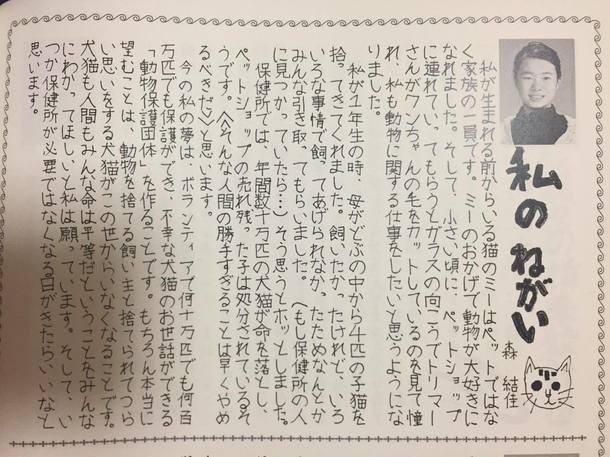 私のねがい
森 結佳
私が生まれる前からいる猫のミーはペットではな
く家族の一員です。ミーのおかげで動物が大好きに
なれました。そして、小さい頃に、ペットショップ
に連れていってもらうとガラスの向こうでトリマー
さんがワンちゃんの毛をカットしているのを見て憧
れ、私も動物に関する仕事をしたいと思うようにな
りました。
私が1年生の時、母がどぶの中から4匹の子猫を
拾ってきてくれました。飼いたかったけれど、いろ
いろな事情で飼ってあげられなかったためなんとか
みんな引き取ってもらいました。(もし保健所の人
に見つかっていたら…)そう思うとホッとしました。
保健所では、年間数十万匹の犬猫が命を落とし、
ペットショップの売れ残った子は処分されているそ
うです。《そんな人間の勝手すぎることは早くやめ
るべきだ》と思います。
今の私の夢は、ボランティアで何十万匹でも何百
万匹でも保護ができ、不幸な犬猫のお世話ができる
「動物保護団体」を作ることです。もちろん本当に
望むことは、動物を捨てる飼い主と捨てられてつら
い思いをする犬猫がこの世からいなくなることです。
犬猫も人間もみんな命は平等だということをみんな
にわかってほしいと私は願っています。そして、い
つか保健所が必要ではなくなる日がきたらいいなと
思います。